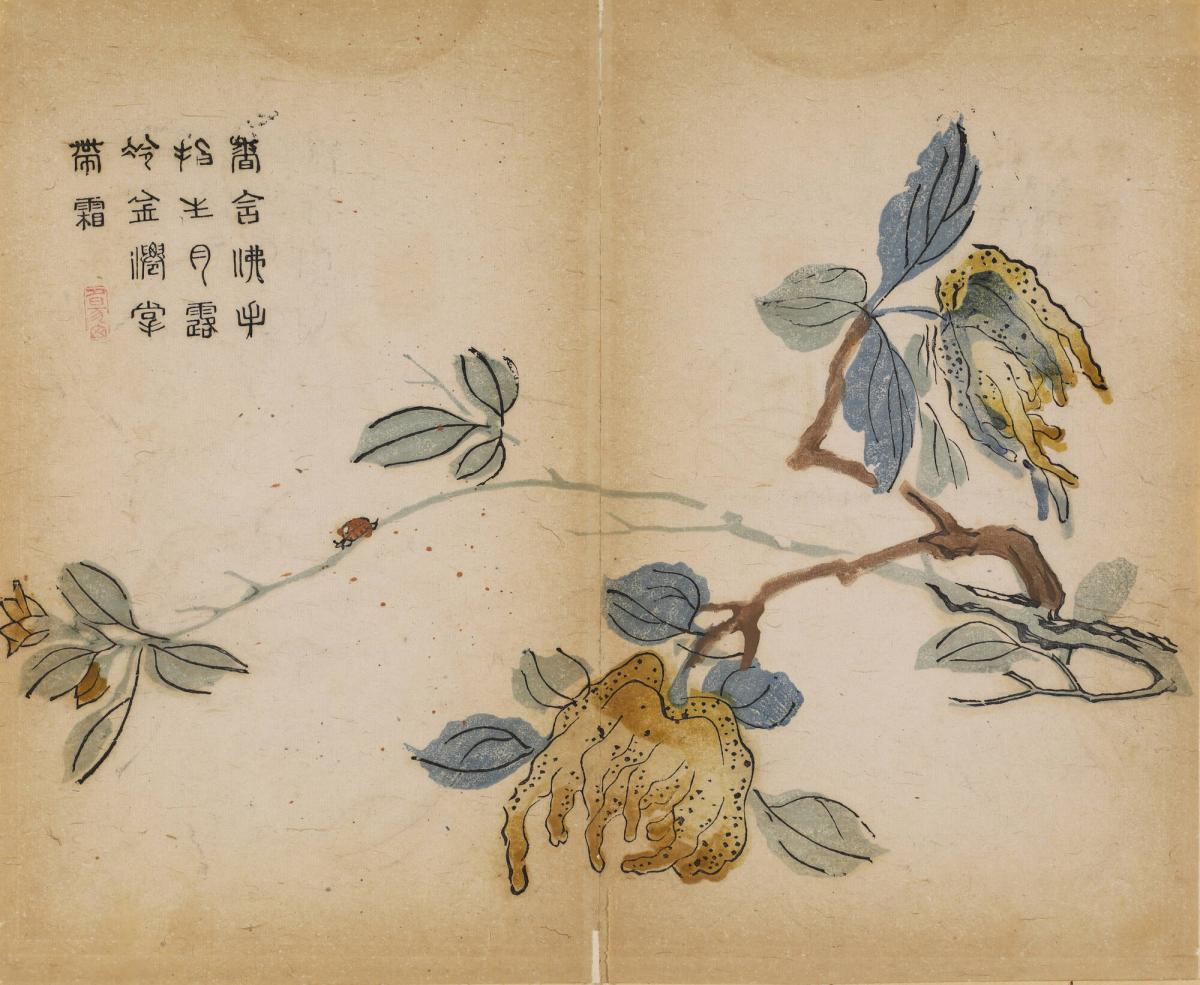 香含佛手
指生月露
冷金僊掌
帶霜